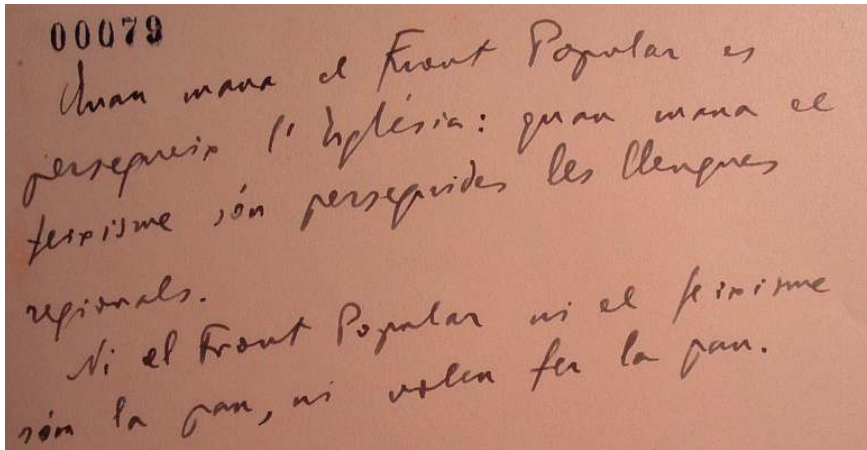 00079
Quan mana el Front Popular es
persegueix l'Església: quan mana el
feixisme són perseguides les llengues
regionals.
Ni el Front Popular ni el feixisme
són la pau, ni volen fer la pau.